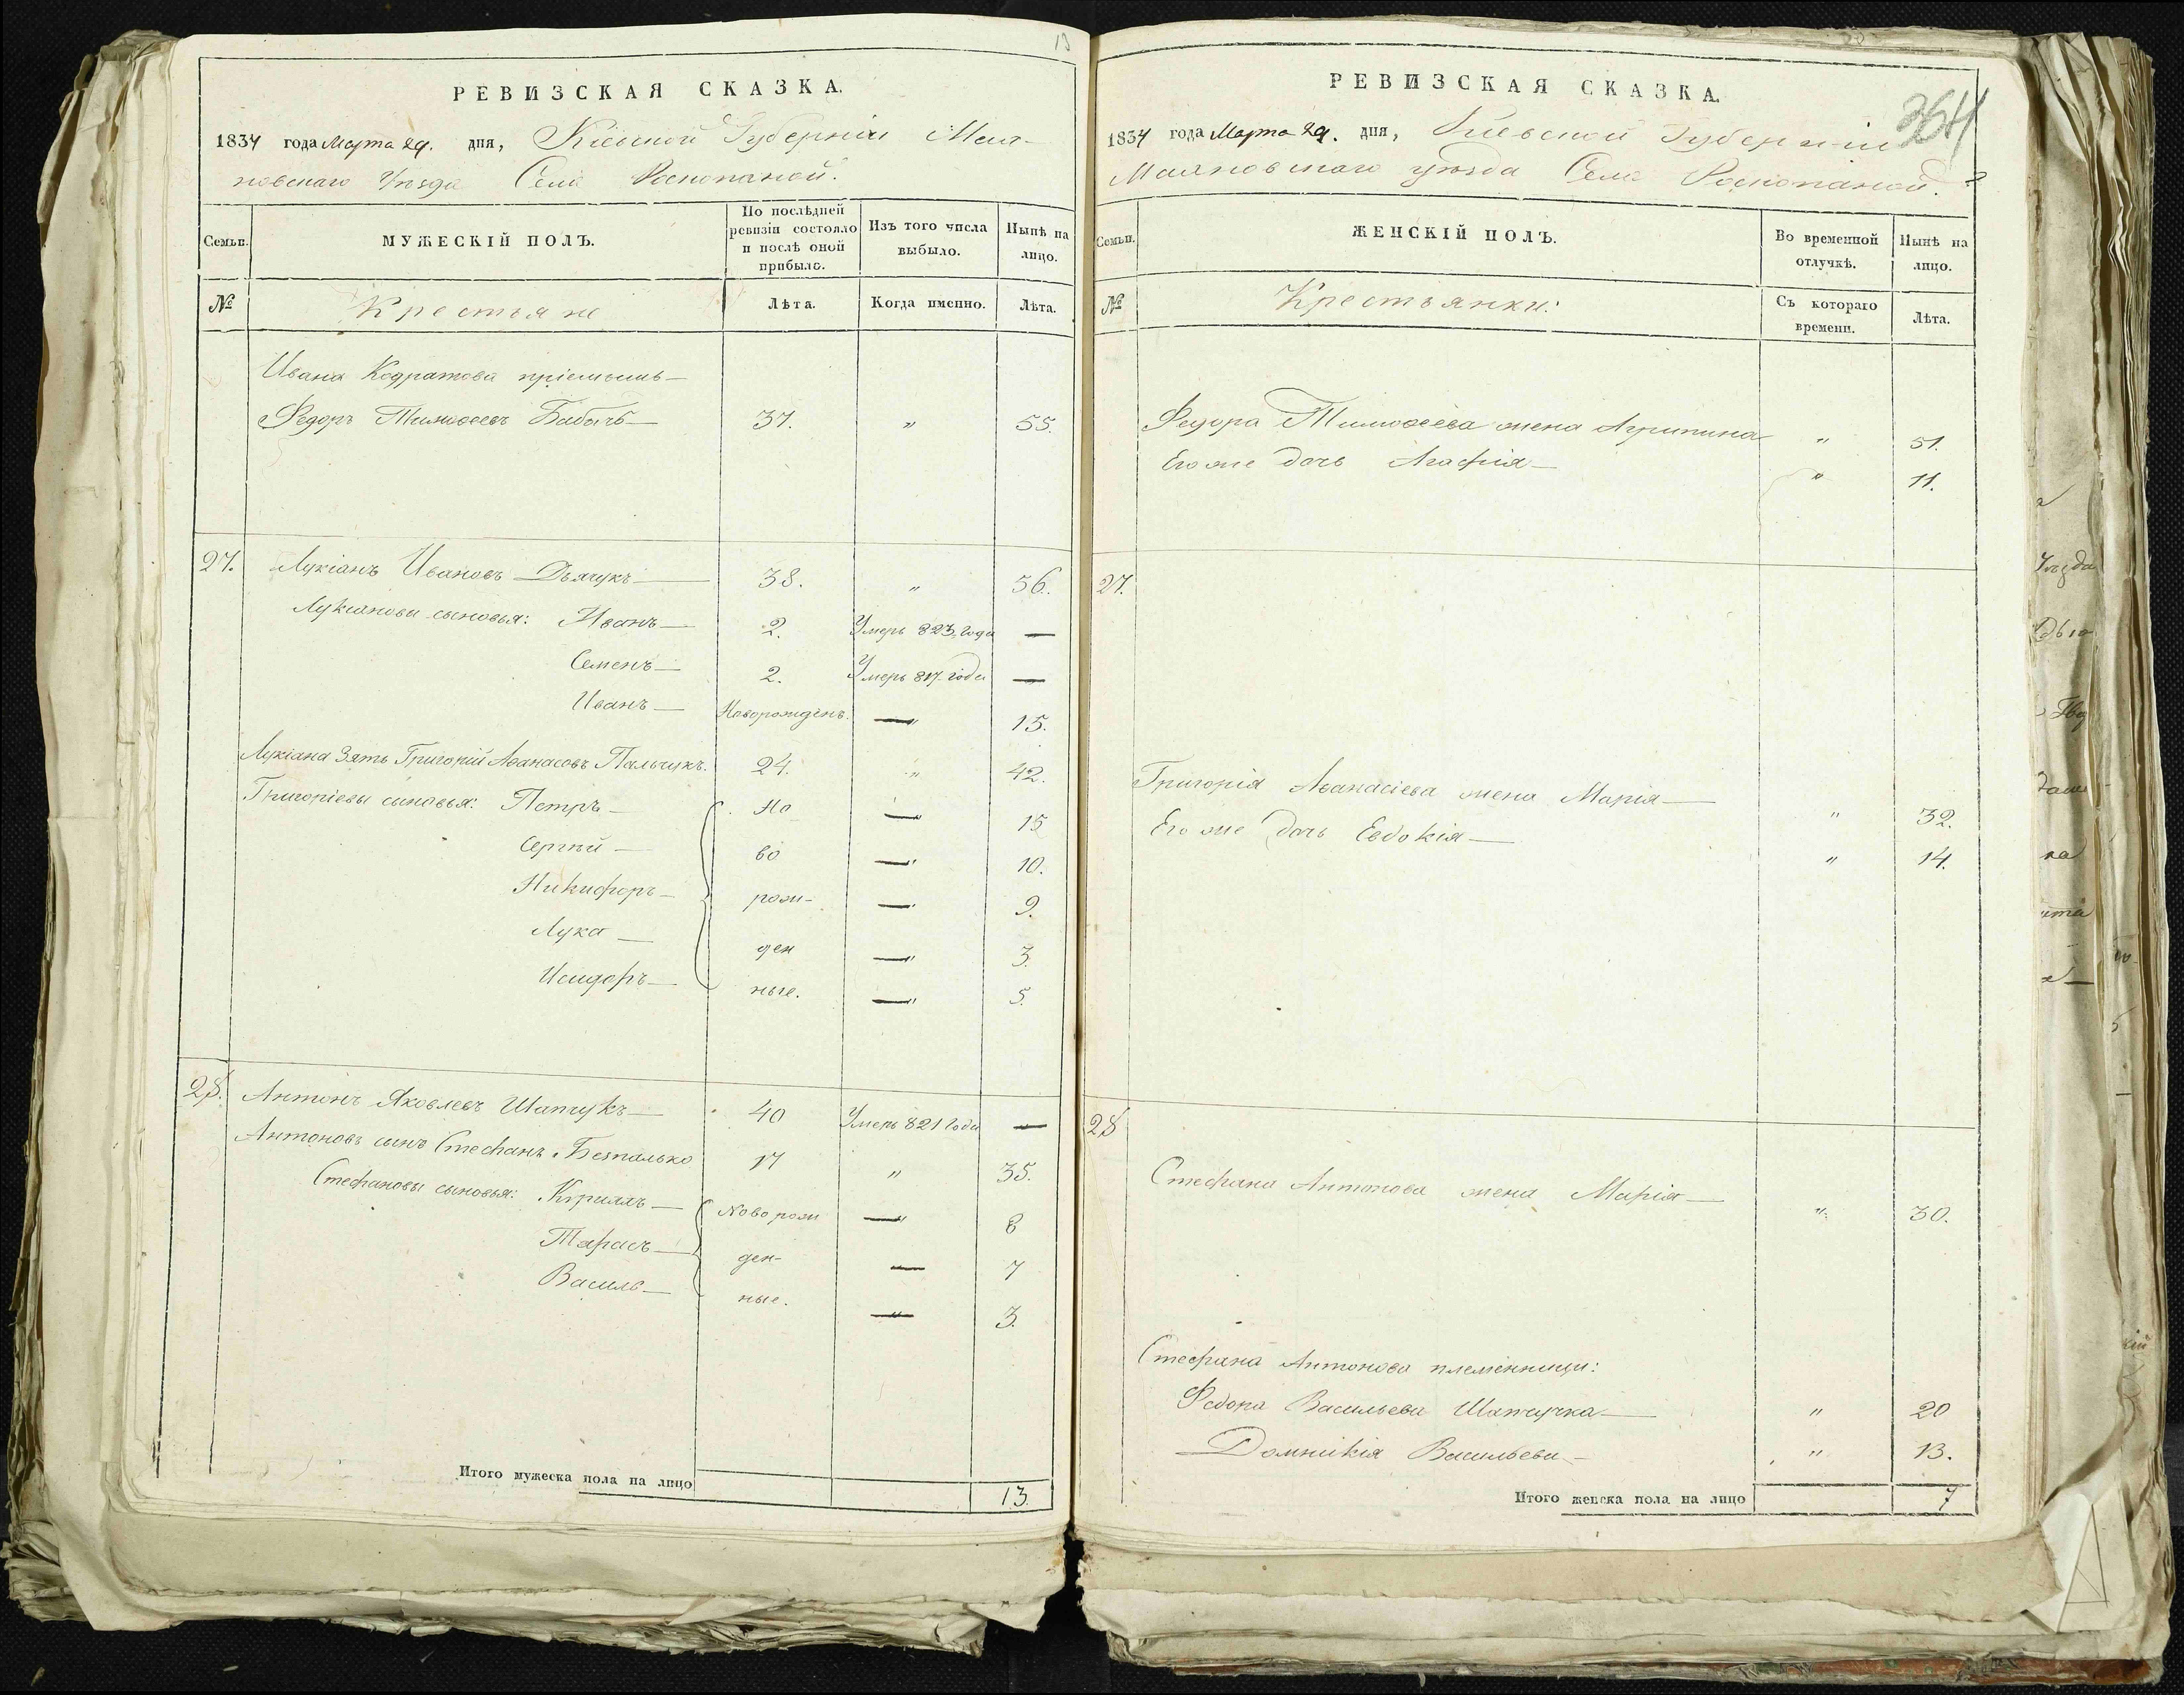 13
РЕВИЗСКАЯ СКАЗКА.
1834 года Марта 29. дня, Кіевской Губерніи
Уѣзда Села Роскопаной.
Семьи.
МУЖЕСКІЙ ПОЛЪ.
По послѣдней ревизіи состояло и послѣ оной прибыло.
Изъ того числа выбыло.
Нынѣ на лицо.
№
Крестьяне
Лѣта.
Когда именно.
Лѣта.
Ивана Кодратова пріемышъ —
Федоръ Тимофеевъ Бабичъ — 37. " 55.
27. Лукіанъ Ивановъ Дьячукъ — 38. " 56.
Лукіановы сыновья: Иванъ — 2. Умеръ 823 года —
Семенъ — 2. Умеръ 817 года —
Иванъ — Новорожденъ. —" 15.
Лукіана Зять Григорій Афанасовъ Пальчукъ. 24. " 42.
Григоріевы сыновья: Петръ — Но —" 15
Сергѣй — во —" 10.
Никифоръ — рож- —" 9.
Лука — ден —" 3.
Исидоръ — ные. —" 5.
28. Антонъ Яковлевъ Шапчукъ — 40 Умеръ 821 года —
Антоновъ сынъ Стефанъ Безпалько 17 " 35.
Стефановы сыновья: Кирилъ — Новорож —" 8
Тарасъ — ден- — 7
Василь — ные. —" 3.
Итого мужеска пола на лицо 13.
364
РЕВИЗСКАЯ СКАЗКА.
1834 года Марта 29. дня, Кіевской Губерніи
уѣзда Села Роскопаной.
Семьи.
ЖЕНСКІЙ ПОЛЪ.
Во временной отлучкѣ.
Нынѣ на лицо.
№
Крестьянки:
Съ котораго времени.
Лѣта.
Федора Тимофеева жена Агрипина " 51.
Его же дочь Агафія — " 11.
27.
Григорія Афанасіева жена Марія — " 32.
Его же дочь Евдокія — " 14.
28
Стефана Антонова жена Марія — " 30.
Стефана Антонова племенници:
Федора Васильева Шапчучка — " 20
Домникія Васильева — " 13.
Итого женска пола на лицо 7